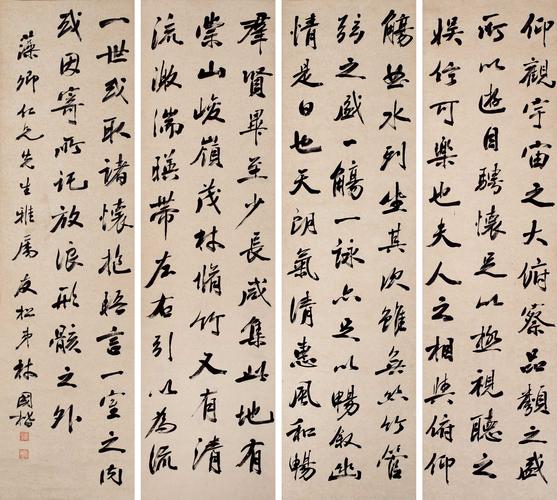 仰觀宇宙之大俯察品類之盛
所以遊目騁懷足以極視聽之
娛信可樂也夫人之相與俯仰
觴曲水列坐其次雖無絲竹管
弦之盛一觴一詠亦足以暢敘幽
情是日也天朗氣清惠風和暢
羣賢畢至少長咸集此地有
崇山峻嶺茂林脩竹又有清
流激湍暎帶左右引以為流
一世或取諸懷抱晤言一室之內
或因寄所託放浪形骸之外
藻卿仁兄先生雅屬 友松弟林國楷